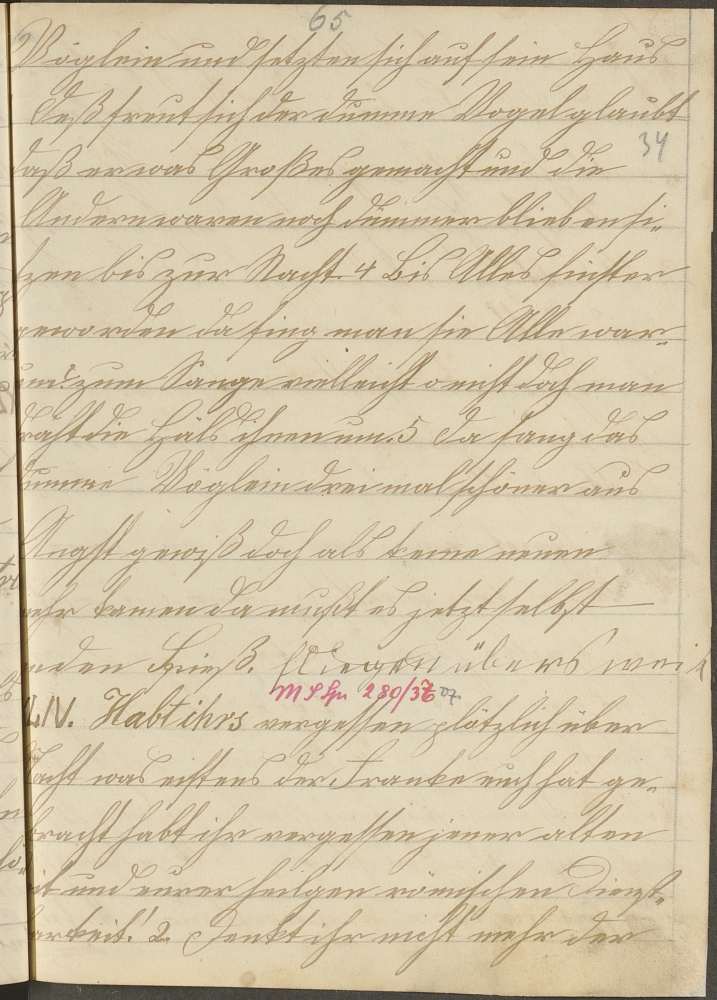 65
Vöglein und setzten sich auf sein Haus
Deß freut sich der dumme Vogel glaubt
34
daß er was Großes gemacht und die
Andern waren noch dümmer blieben si-
tzen bis zur Nacht. 4 Bis Alles finster
geworden da fing man sie Alle war-
um? zum Sange vielleicht o nicht doch man
dräht die Häls ihnen um. 5 Da sang das
dumme Vöglein drei mal schöner aus
Angst gewiß doch als keine neuen
mehr kamen da mußt es jetzt selbst
an den Spieß. fliegen übers
LIV. Habt ihrs vergessen plötzlich über
280/36
Nacht was einstens der Franke euch hat ge-
bracht habt ihr vergessen jener alten
Zeit und eurer heilgen römischen Dienst-
barkeit! 2. Denkt ihr nicht mehr der